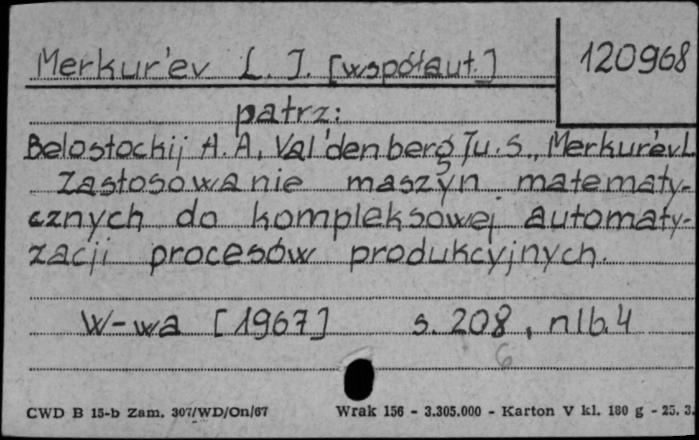 Merkur'ev L. I. [współaut.]
120968
patrz:
Belostockij A. A., Val'denberg Ju. S., Merkur'ev L.
Zastosowanie maszyn matematy-
cznych do kompleksowej automaty-
zacji procesów produkcyjnych.
W-wa [1967] s. 208, nlb. 4
6
CWD B 15-b Zam. 307/WD/On/67 Wrak 156 - 3.305.000 - Karton V kl. 180 g - 25. 3.